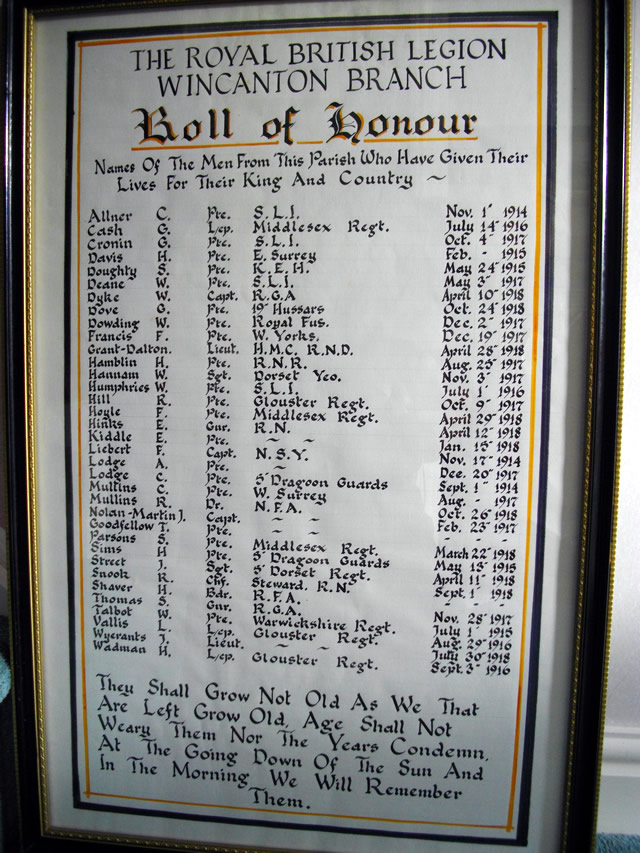 THE ROYAL BRITISH LEGION
WINCANTON BRANCH
Roll of Honour
Names Of The Men From This Parish Who Have Given Their
Lives For Their King And Country ~
Allner C. Pte. S.L.I. Nov. 1" 1914
Cash G. L/cp. Middlesex Regt. July 14" 1916
Cronin G. Pte. S.L.I. Oct. 4" 1917
Davis H. Pte. E. Surrey Feb. - 1915
Doughty S. Pte. K.E.H. May 24" 1915
Deane W. Pte. S.L.I. May 3" 1917
Dyke W. Capt. R.G.A April 10" 1918
Dove G. Pte. 19" Hussars Oct. 24" 1918
Dowding W. Pte. Royal Fus. Dec. 2" 1917
Francis F. Pte. W. Yorks. Dec. 19" 1917
Grant-Dalton. Lieut. H.M.C. R.N.D. April 28" 1918
Hamblin H. Pte. R.N.R. Aug. 25" 1917
Hannam W. Sgt. Dorset Yeo. Nov. 3" 1917
Humphries W. Pte. S.L.I. July 1" 1916
Hill R. Pte. Glouster Regt. Oct. 9" 1917
Hoyle F. Pte. Middlesex Regt. April 29" 1918
Hinks E. Gnr. R.N. April 12" 1918
Kiddle E. Pte. ~ ~ Jan. 15" 1918
Liebert F. Capt. N.S.Y. Nov. 17" 1914
Lodge A. Pte. ~ Dec. 20" 1917
Lodge C. Pte. 5" Dragoon Guards Sept. 1" 1914
Mullins C. Pte. W. Surrey Aug. - 1917
Mullins R. Dr. N.F.A. Oct. 26" 1918
Nolan-Martin J. Capt. ~ ~ Feb. 23" 1917
Goodfellow T. Pte. ~ ~ - - -
Parsons S. Pte. Middlesex Regt. March 22" 1918
Sims H Pte. 5" Dragoon Guards May 13" 1915
Street J. Sgt. 5" Dorset Regt. April 11" 1918
Snook R. Chf. Steward. R.N. Sept. 1" 1918
Shaver H. Bdr. R.F.A. - - -
Thomas S. Gnr. R.G.A. Nov. 28" 1917
Talbot W. Pte. Warwickshire Regt. July 1" 1915
Vallis L. L/cp. Glouster Regt. Aug. 29" 1916
Wyerants J. Lieut. ~ ~ July 30" 1918
Wadman H. L/cp. Glouster Regt. Sept. 3" 1916
They Shall Grow Not Old As We That
Are Left Grow Old, Age Shall Not
Weary Them Nor The Years Condemn,
At The Going Down Of The Sun And
In The Morning We Will Remember
Them.